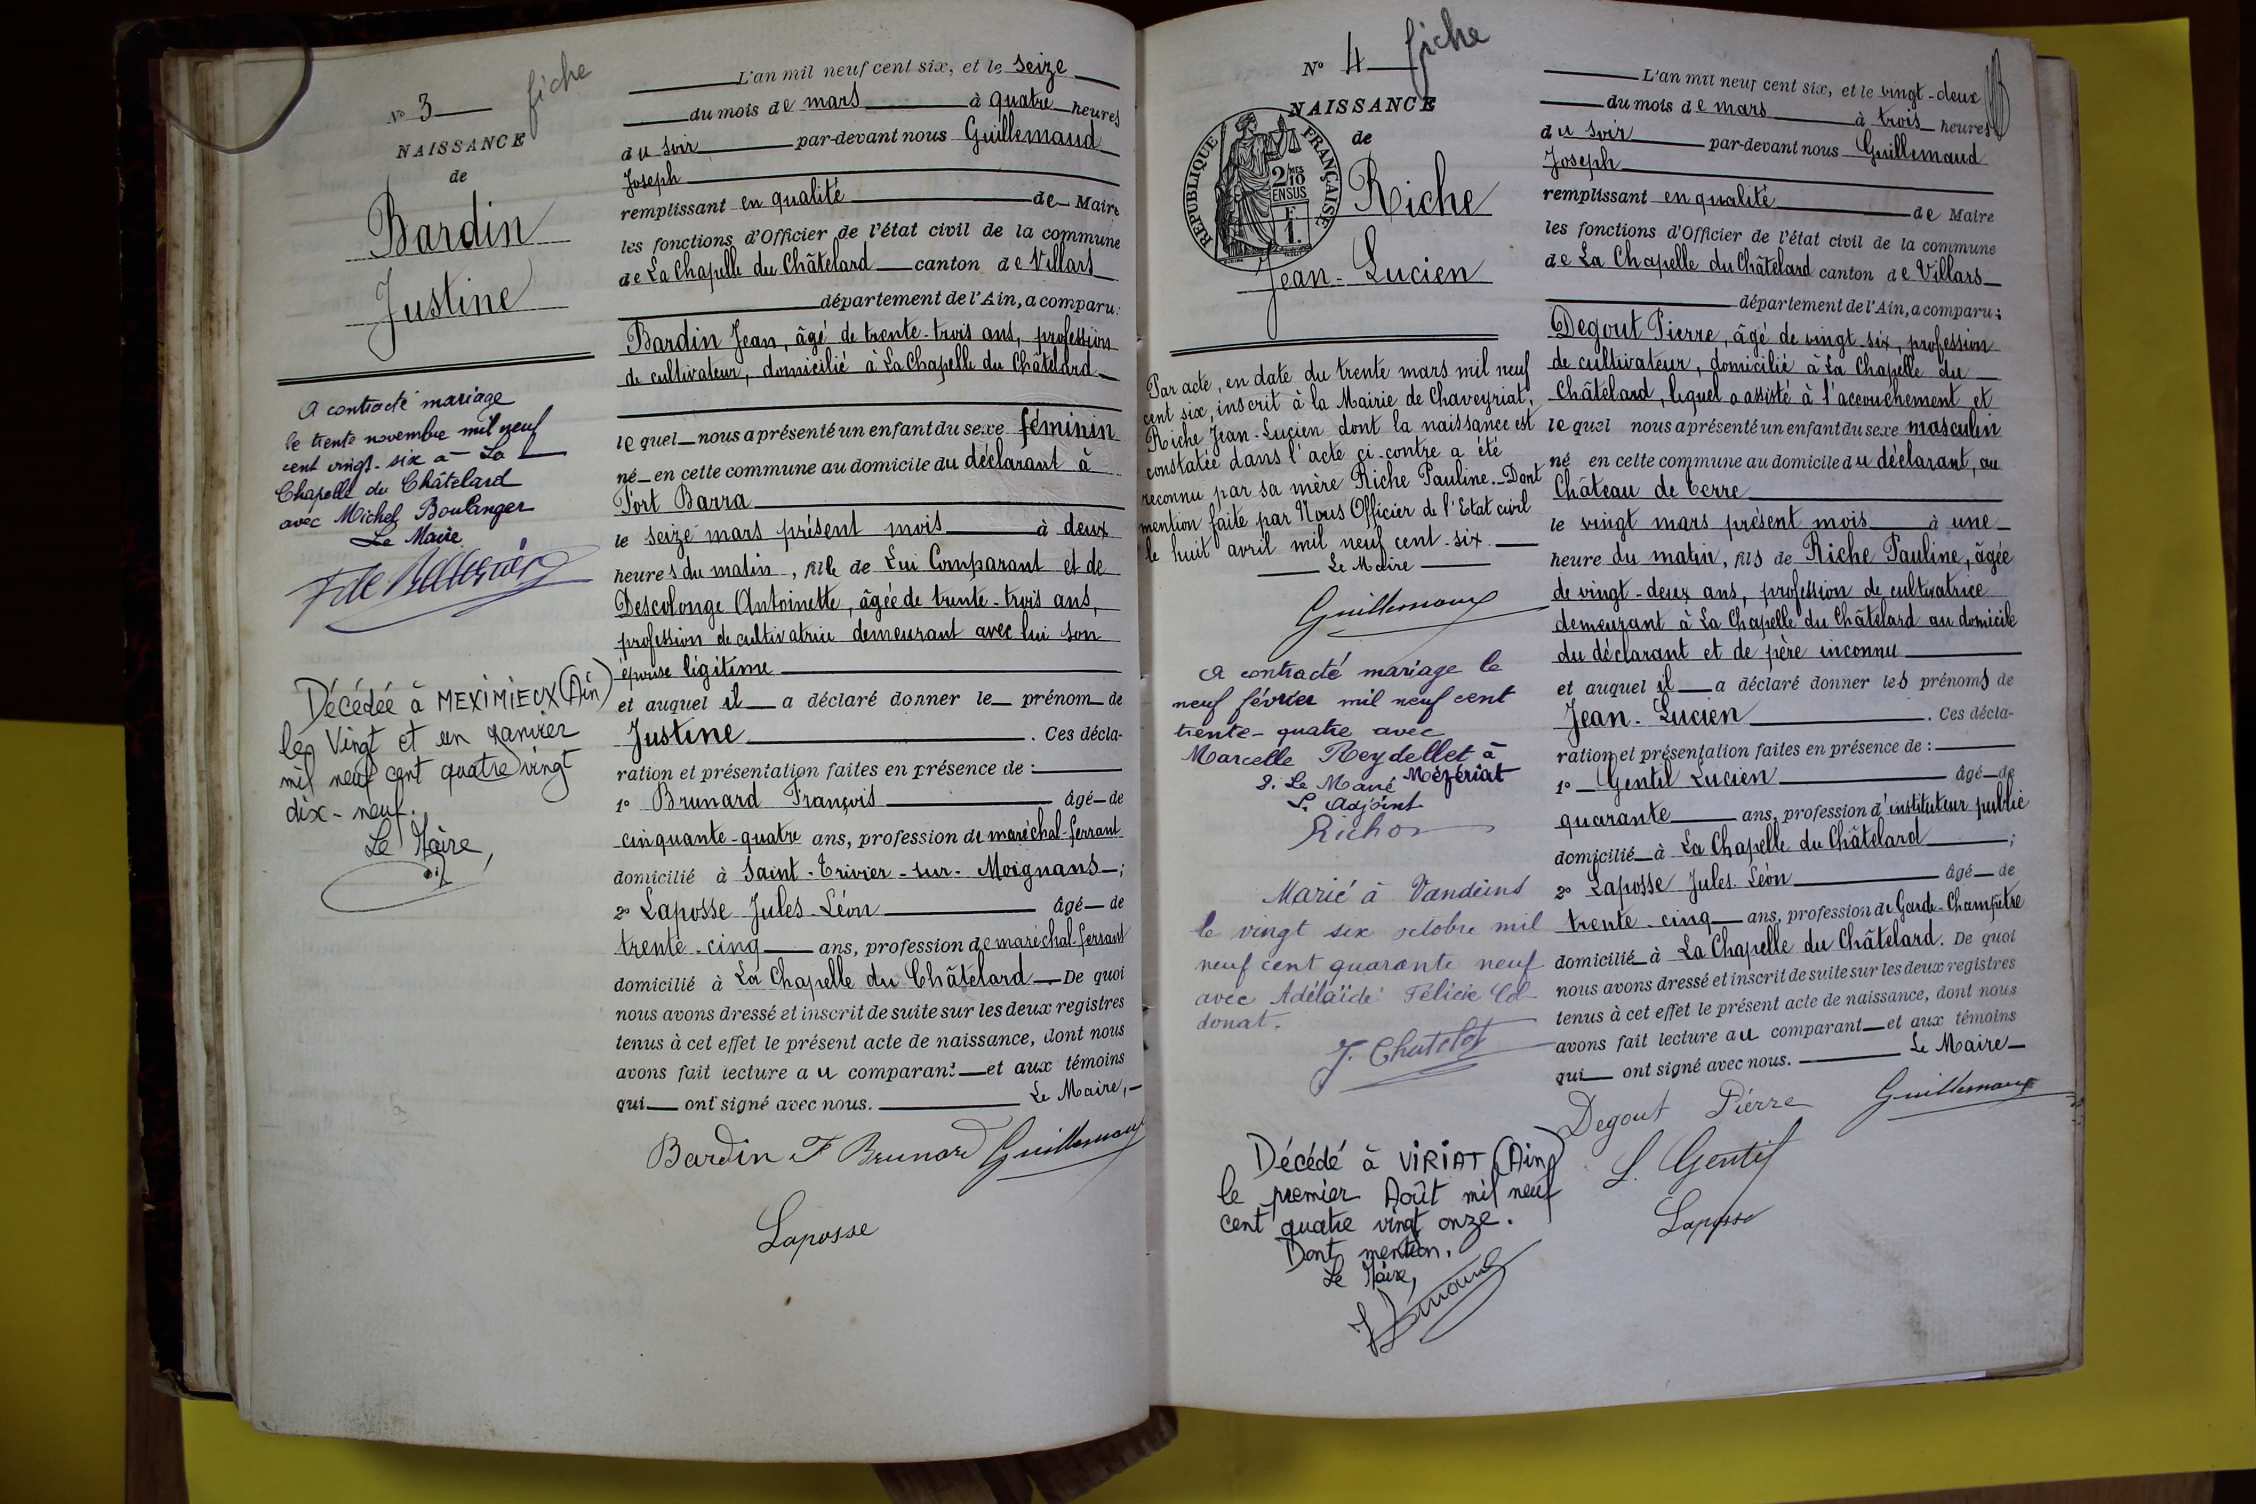 fiche
N° 3
NAISSANCE
de
Bardin
Justine
A contracté mariage
le trente novembre mil neuf
cent vingt-six à La
Chapelle du Châtelard
avec Michel Boulanger
Le Maire
Décédée à MEXIMIEUX (Ain)
le Vingt et un Janvier
mil neuf cent quatre vingt
dix-neuf.
Le Maire,
L'an mil neuf cent six, et le seize
du mois de mars à quatre heures
du soir par-devant nous Guillemaud
Joseph
remplissant en qualité de Maire
les fonctions d'Officier de l'état civil de la commune
de La Chapelle du Châtelard canton de Villars
département de l'Ain, a comparu:
Bardin Jean, âgé de trente-trois ans, profession
de cultivateur, domicilié à La Chapelle du Châtelard
lequel nous a présenté un enfant du sexe féminin
né en cette commune au domicile du déclarant à
Port Barra
le seize mars présent mois à deux
heures du matin, fille de Lui Comparant et de
Descolonge Antoinette, âgée de trente-trois ans,
profession de cultivatrice demeurant avec lui son
épouse légitime
et auquel il a déclaré donner le prénom de
Justine. Ces décla-
ration et présentation faites en présence de :
1° Brunard François âgé de
cinquante-quatre ans, profession de maréchal-ferrant
domicilié à Saint-Trivier-sur-Moignans;
2° Laposse Jules-Léon âgé de
trente-cinq ans, profession de maréchal-ferrant
domicilié à La Chapelle du Châtelard De quoi
nous avons dressé et inscrit de suite sur les deux registres
tenus à cet effet le présent acte de naissance, dont nous
avons fait lecture au comparant et aux témoins
qui ont signé avec nous. Le Maire,
Bardin F Brunard Guillemaud
Laposse
N° 4 fiche
NAISSANCE
de
REPUBLIQUE FRANÇAISE
2/10
EN SUS
F
1.
Riche
Jean-Lucien
Par acte, en date du trente mars mil neuf
cent six, inscrit à la Mairie de Chaveyriat,
Riche Jean-Lucien dont la naissance est
constatée dans l'acte ci-contre a été
reconnu par sa mère Riche Pauline. Dont
mention faite par Nous Officier de l'Etat civil
le huit avril mil neuf cent-six.
Le Maire
Guillemaud
A contracté mariage le
neuf février mil neuf cent
trente-quatre avec
Marcelle Reydellet à
Mézériat
Adjoint
Richon
Marié à Vandeins
le vingt six octobre mil
neuf cent quarante neuf
avec Adélaïde Félicie
donat.
J. Chatelet
Décédé à VIRIAT (Ain)
le premier Août mil neuf
cent quatre vingt onze.
Dont mention.
Le Maire,
L'an mil neuf cent six, et le vingt-deux
du mois de mars à trois heures
du soir par-devant nous Guillemaud
Joseph
remplissant en qualité de Maire
les fonctions d'Officier de l'état civil de la commune
de La Chapelle du Châtelard canton de Villars
département de l'Ain, a comparu:
Degout Pierre, âgé de vingt-six, profession
de cultivateur, domicilié à La Chapelle du
Châtelard, lequel a assisté à l'accouchement et
lequel nous a présenté un enfant du sexe masculin
né en cette commune au domicile du déclarant, au
Château de Terre
le vingt mars présent mois à une
heure du matin, fils de Riche Pauline, âgée
de vingt-deux ans, profession de cultivatrice
demeurant à La Chapelle du Châtelard au domicile
du déclarant et de père inconnu
et auquel il a déclaré donner les prénoms de
Jean-Lucien. Ces décla-
ration et présentation faites en présence de :
1° Gentil Lucien âgé de
quarante ans, profession d'instituteur public
domicilié à La Chapelle du Châtelard;
2° Laposse Jules-Léon âgé de
trente-cinq ans, profession de Garde-Champêtre
domicilié à La Chapelle du Châtelard. De quoi
nous avons dressé et inscrit de suite sur les deux registres
tenus à cet effet le présent acte de naissance, dont nous
avons fait lecture au comparant et aux témoins
qui ont signé avec nous. Le Maire
Degout Pierre Guillemaud
L. Gentil
Laposse